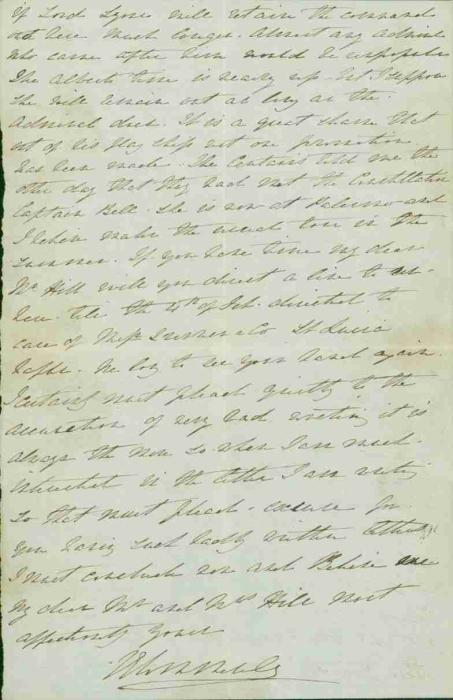 if Lord Lyons will retain the command
out here much longer. Almost any Admiral
who came after him would be unpopular
The Alberts time is nearly up. Yet I suppose
she will remain out as long as the
Admiral does. It is a great shame that
out of his flag ship not one promotion
has been made. The told me the
other day that they had met the Constellation
Captain Bell. She is now at Palermo and
I believe makes the usual tour in the
summer. If you have time my dear
Mr Hill will you direct a line to
here till the 4th of Feb. directed to
care of Messrs & Co St Lucia
We long to see your hand again.
I certainly must plead guilty to the
accusation of very bad writing it is
always the more so when I am much
interested in the letter I am writing
so that must plead excuse for
you having such badly written letters
I must conclude now and Believe me
My dear Mr and Mrs Hill most
affectionately yours